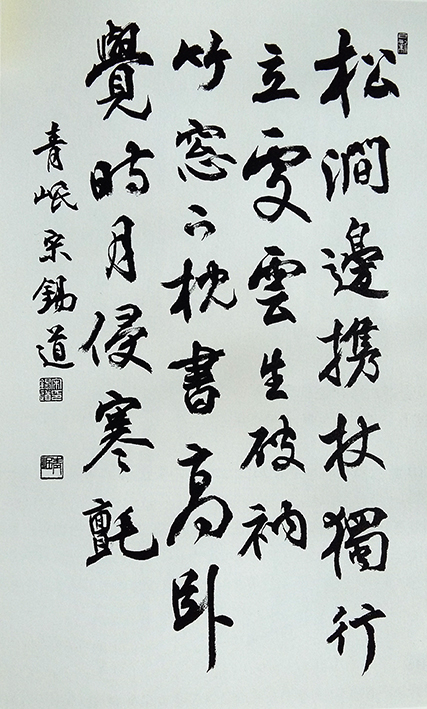 松澗邊携杖獨行
立處雲生破衲
竹窓下枕書高臥
覺時月侵寒氈
青岷宋錫道